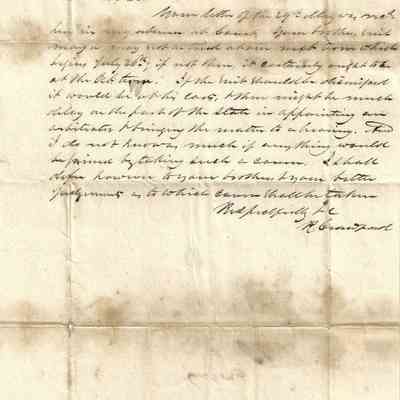 Your letter of the 29th May was recd
here in my absence at Court. Your brothers suit
may or may not be tried at our next term which
begins July 26th; if not then, it certainly ought to be
at the Oct term. If the suit should be dismissed
it would be at his cost, & there might be much
delay on the part of the State in appointing an
arbitrator & bringing the matter to a hearing. And
I do not know as much if anything would
be gained by taking such a course. I shall
defer however to your brothers & your better
judgment, as to which course shall be taken
Respectfully &c
R Crawford